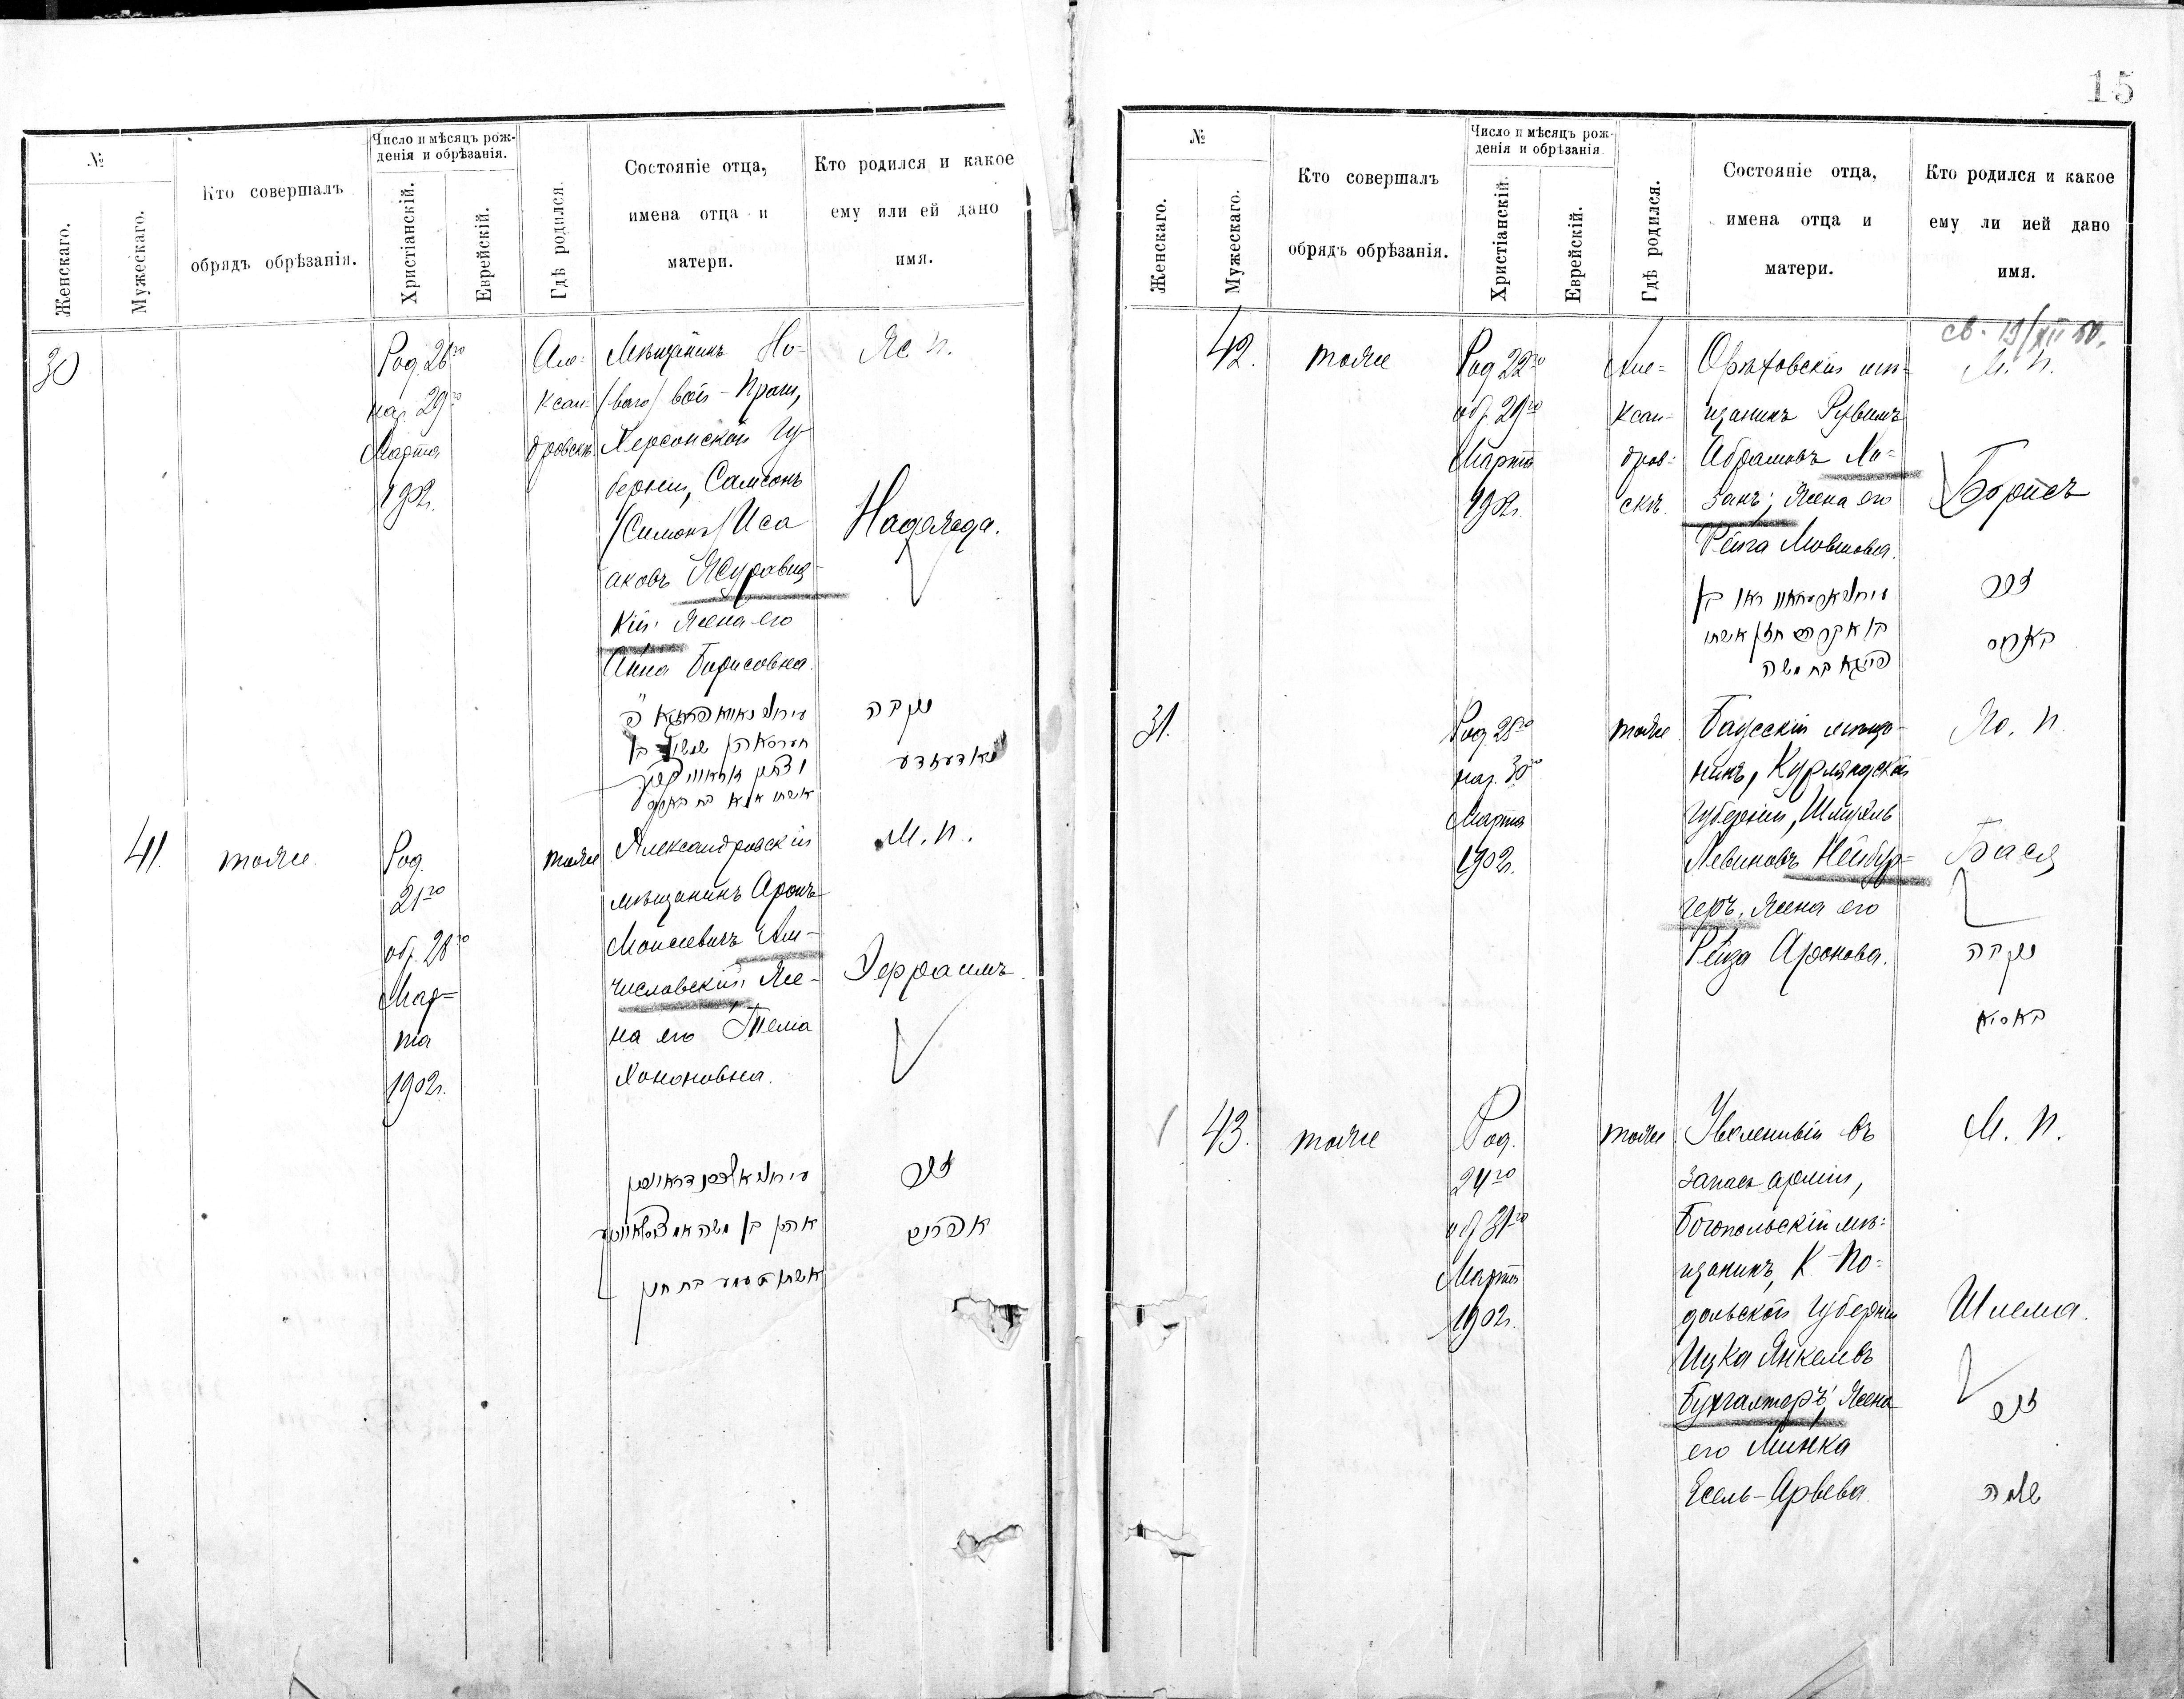 15
№
Женскаго.
Мужескаго.
Кто совершалъ
обрядъ обрѣзанія.
Число и мѣсяцъ рож-
денія и обрѣзанія.
Христіанскій.
Еврейскій.
Гдѣ родился.
Состояніе отца,
имена отца и
матери.
Кто родился и какое
ему или ей дано
имя.
30
Род. 26го
нар. 29го
Марта
1902г.
Але=
ксан=
дровскъ
Мѣщанинъ Но-
/ваго/ вой-Праги,
Херсонской Гу-
берніи, Самсонъ
/Симонъ/ Иса
аковъ Журавиц-
кій; Жена его
Анна Борисовна.
Ж. п.
Надежда.
נקבה
נאדעזדע
41.
тоже
Род.
21го
обр. 28го
Мар=
та
1902г.
тоже
Александровскій
мѣщанинъ Аронъ
Моисеевичъ Ам-
числавскій, Же-
на его Тема
Хононовна.
М. п.
Эфраимъ.
זכר
אפרים
אהרן בן משה
№
Женскаго.
Мужескаго.
Кто совершалъ
обрядъ обрѣзанія.
Число и мѣсяцъ рож-
денія и обрѣзанія
Христіанскій.
Еврейскій.
Гдѣ родился.
Состояніе отца,
имена отца и
матери.
Кто родился и какое
ему ли ией дано
имя.
св. 19/XII 50.
42.
тоже
Род 22го
обр 29го
Марта
1902г.
Але=
ксан=
дров=
скъ.
Орѣховскій мѣ-
щанинъ Рувимъ
Абрамовъ Ха=
занъ; Жена его
Фейга Мовшова.
М. п.
Борисъ
זכר
פייגא בת משה
31.
Род. 28го
нар. 30го
Марта
1902г.
тоже
Баусскій мѣща-
нинъ, Курляндской
Губерніи, Шмуель
Левиновъ Нейбур=
геръ, Жена его
Рейза Аронова.
Жо. п.
Бася
נקבה
באסיא
43.
тоже
Род.
24го
обр 31го
Марта
1902г.
тоже
Уволенный въ
запасъ арміи,
Богопольскій мѣ=
щанинъ, К-По=
дольской Губерніи
Ицка Янкелевъ
Бухгалтеръ; Жена
его Минка
Есель-Арьева.
М. п.
Шлема.
זכר
שלמה